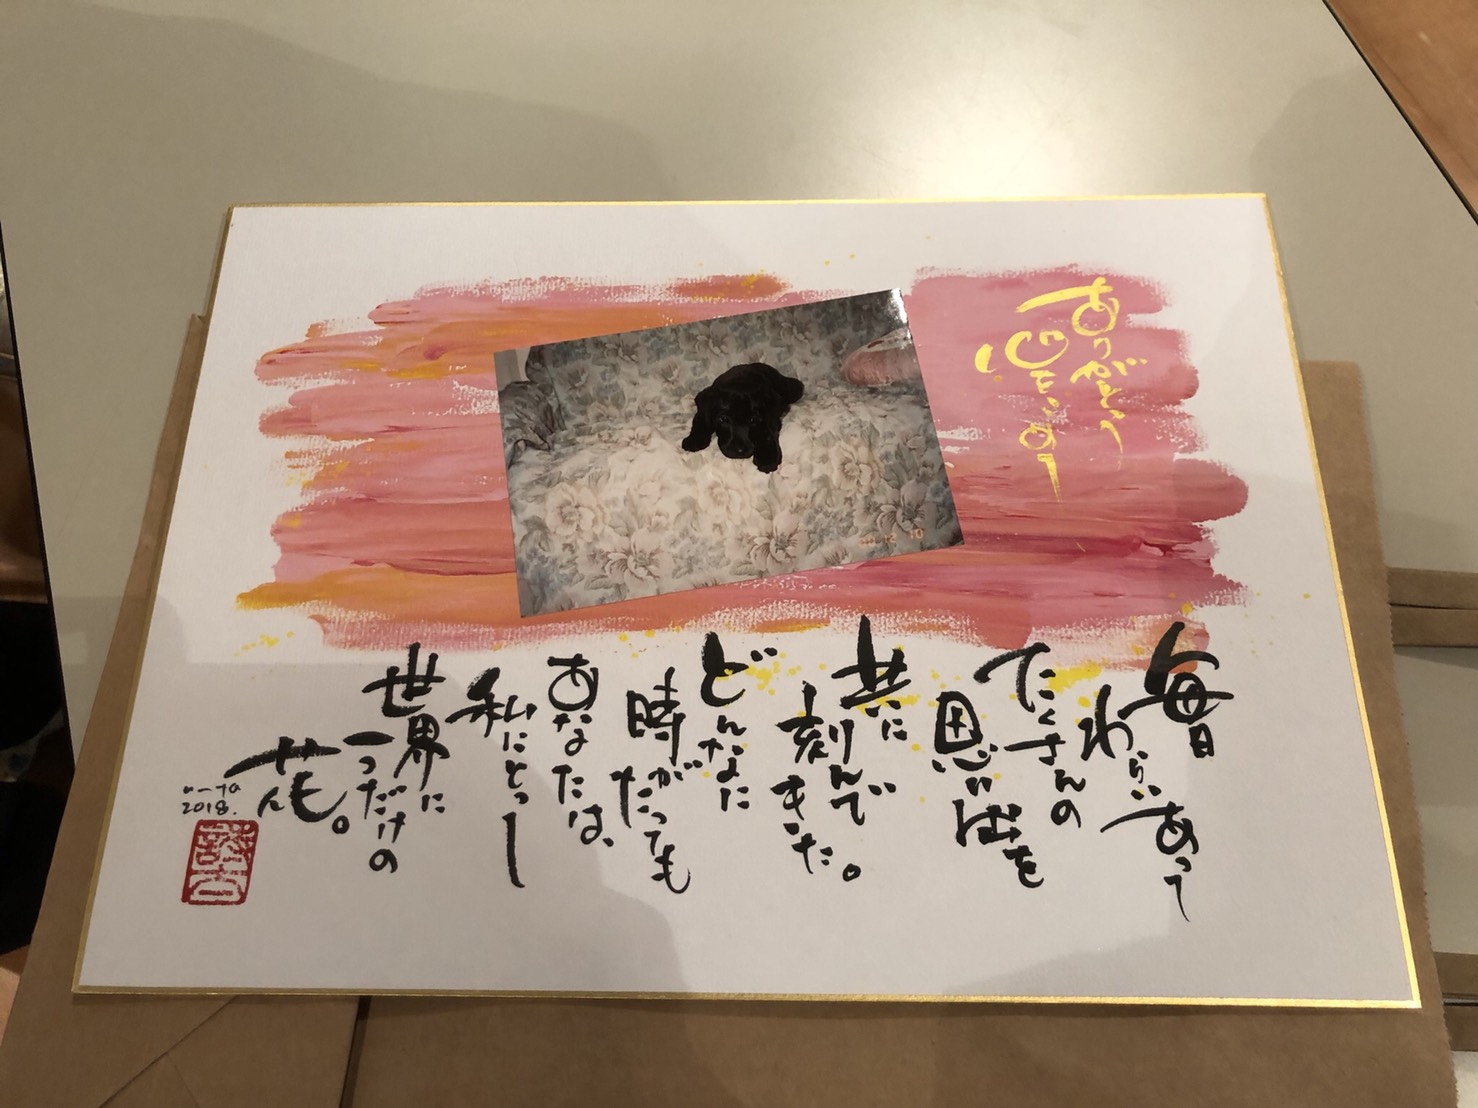 ありがとう
毎日
わらいあって
たくさんの
思い出を
共に
刻んできた。
どんなに
時がたっても
あなたは、
私にとって
世界に
一つだけの
花。
2018.